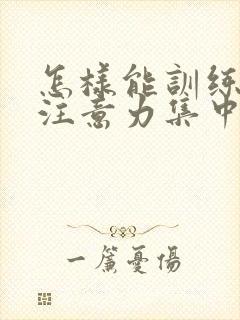 怎樣能訓練
注意力集中
一簾憂傷